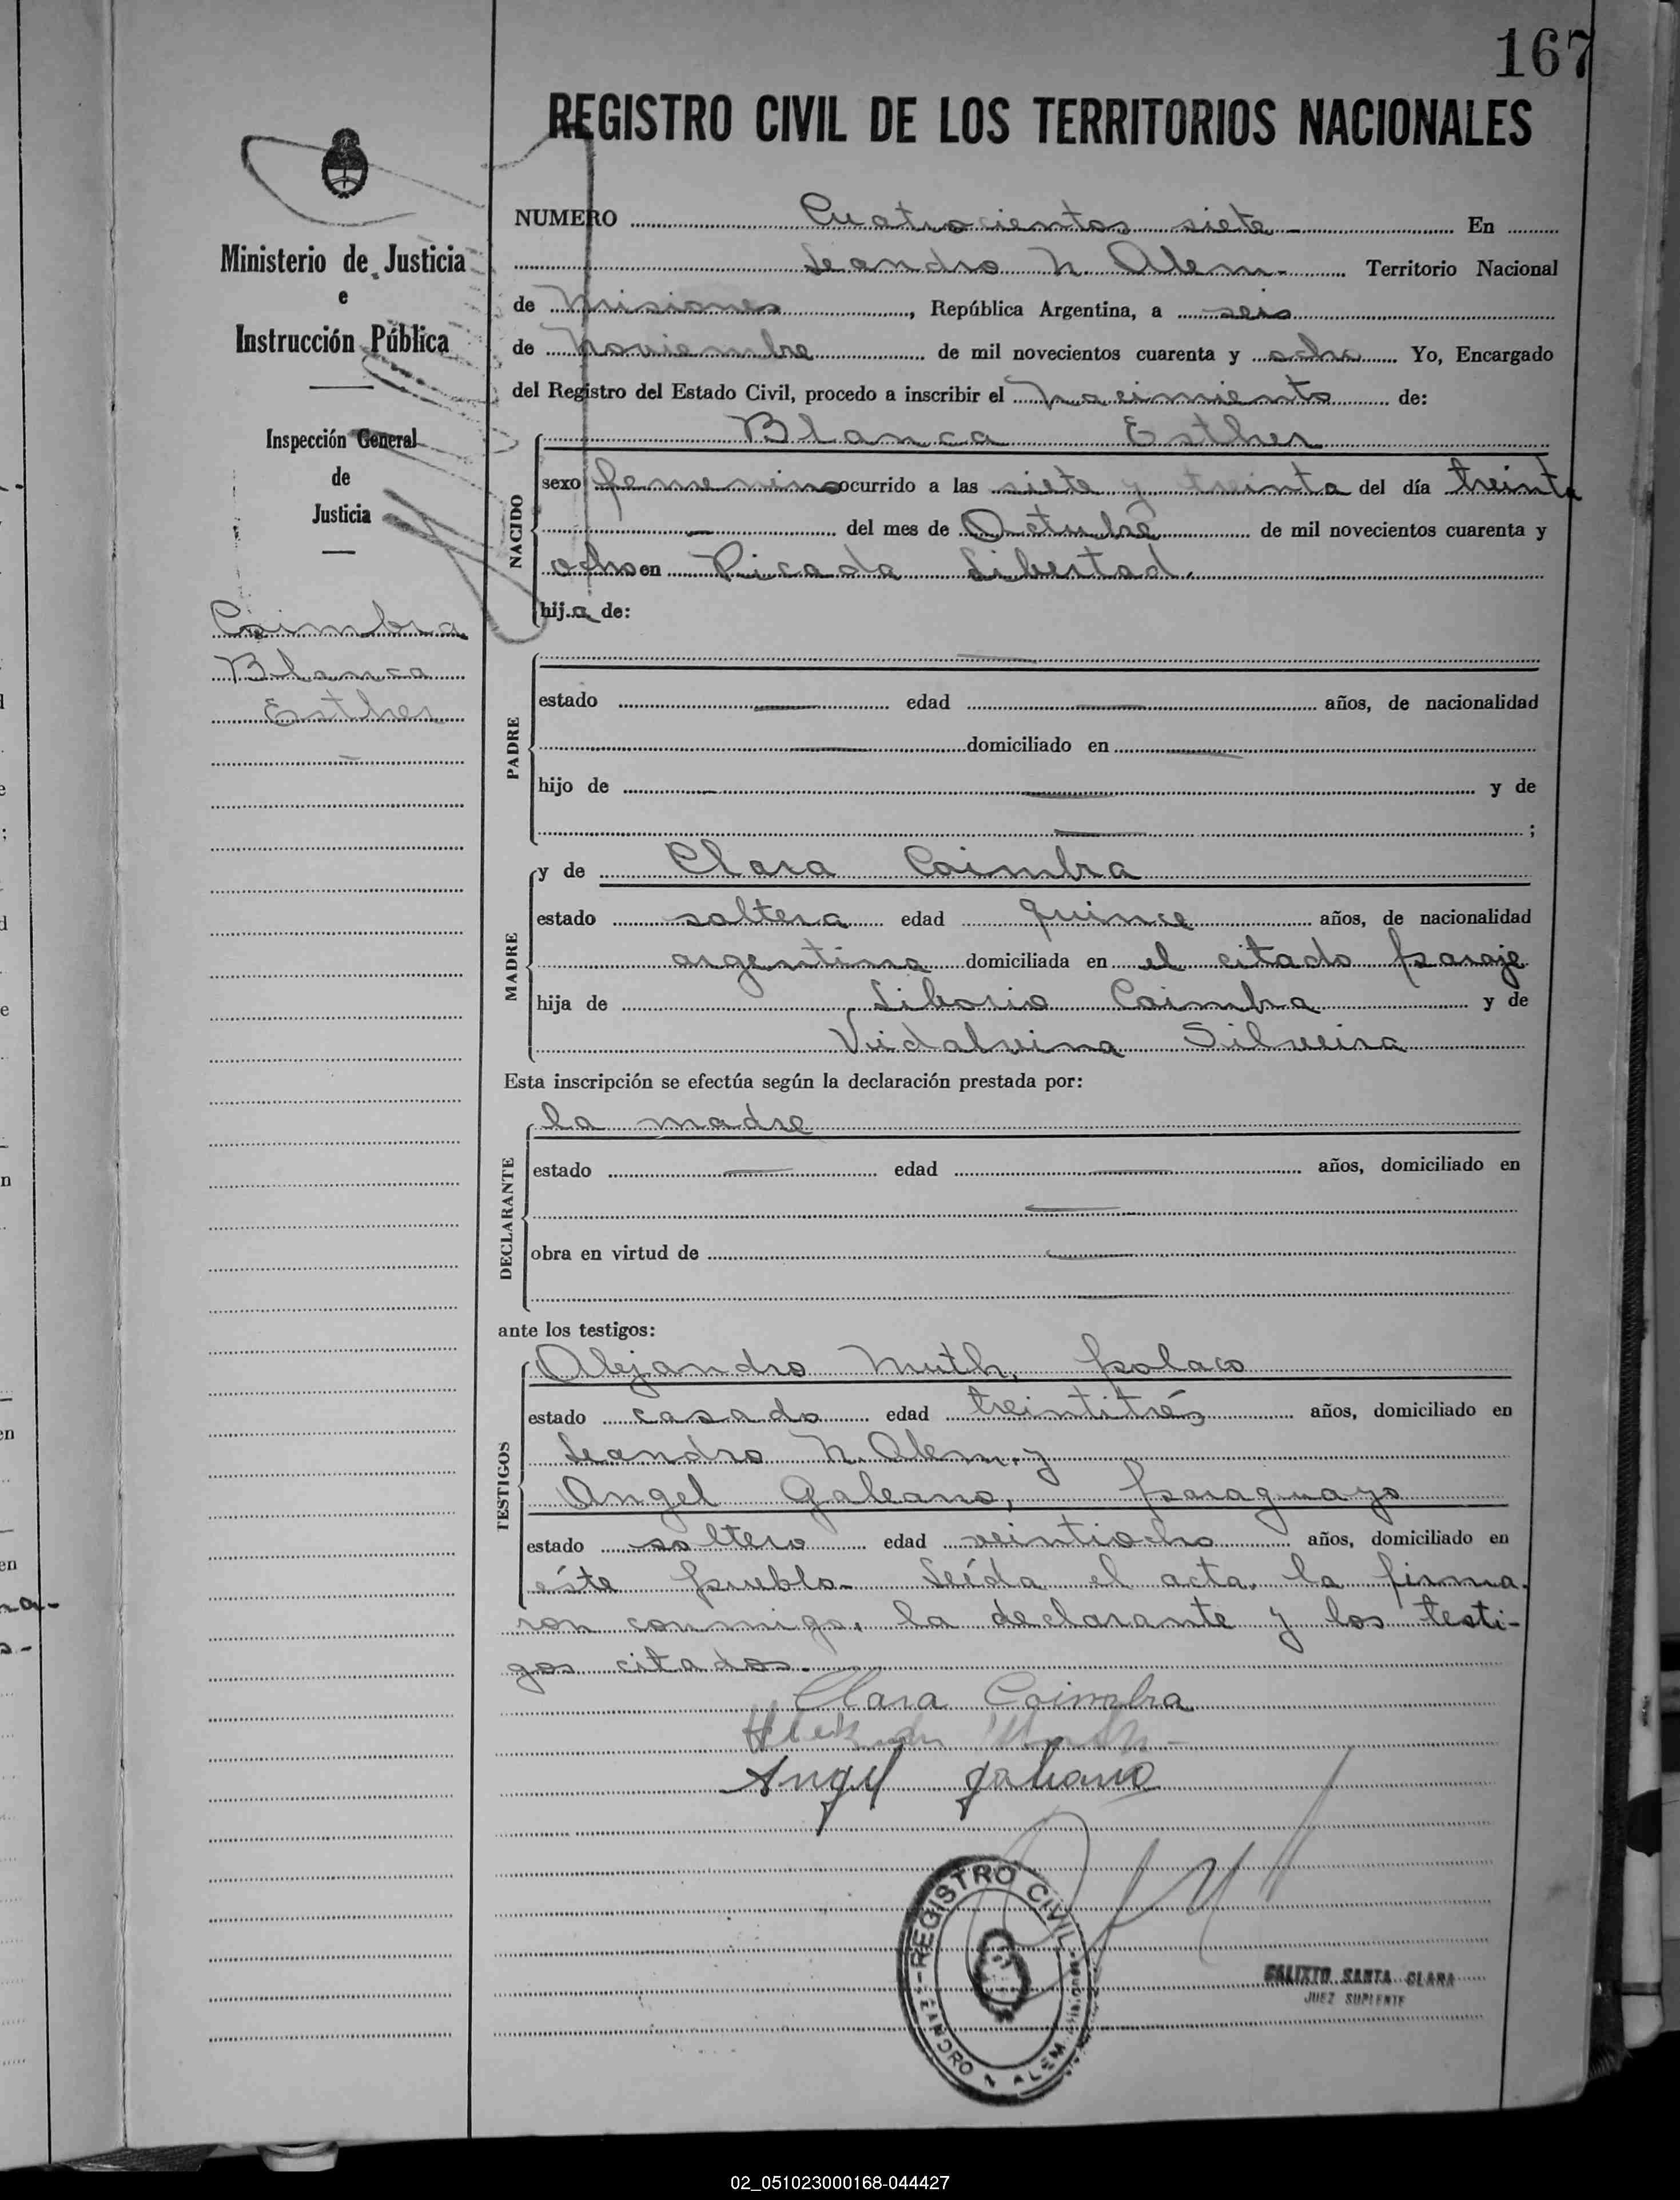 167
REGISTRO CIVIL DE LOS TERRITORIOS NACIONALES
Ministerio de Justicia
e
Instrucción Pública
Inspección General
de
Justicia
Coimbra
Blanca
Esther
NUMERO Cuatrocientos siete - En
Leandro N. Alem.- Territorio Nacional
de Misiones, República Argentina, a seis
de Noviembre de mil novecientos cuarenta y ocho Yo, Encargado
del Registro del Estado Civil, procedo a inscribir el nacimiento de:
NACIDO
Blanca Esther
sexo femenino ocurrido a las siete y treinta del día treinta
— del mes de Octubre de mil novecientos cuarenta y
ocho en Picada Libertad.
hija de:
PADRE
—
estado — edad — años, de nacionalidad
— domiciliado en —
hijo de — y de
— ;
MADRE
y de Clara Coimbra
estado soltera edad quince años, de nacionalidad
argentina domiciliada en el citado paraje
hija de Liborio Coimbra y de
Vidalvina Silveira
Esta inscripción se efectúa según la declaración prestada por:
DECLARANTE
la madre
estado — edad — años, domiciliado en
—
obra en virtud de —
—
ante los testigos:
TESTIGOS
Alejandro Muth, polaco
estado casado edad treintitrés años, domiciliado en
Leandro N. Alem. y
Angel Galeano, paraguayo
estado soltero edad veintiocho años, domiciliado en
éste pueblo- Leída el acta, la firma-
ron conmigo, la declarante y los testi-
gos citados.
Clara Coimbra
Angel galeano
REGISTRO CIVIL
LEANDRO N ALEM Misiones
CALIXTO SANTA CLARA
JUEZ SUPLENTE
02_051023000168-044427